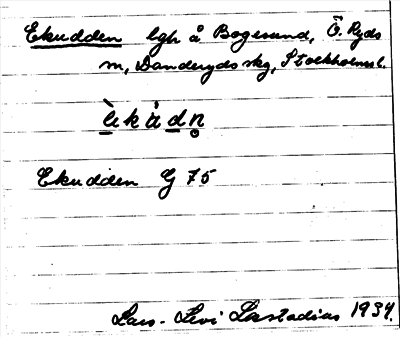 Ekudden lgh å Bogesund, Ö. Ryds
sn, Danderyds skg, Stockholms l.
èkùdn̥
Ekudden G 75
Lars-Levi Læstadius 1934.